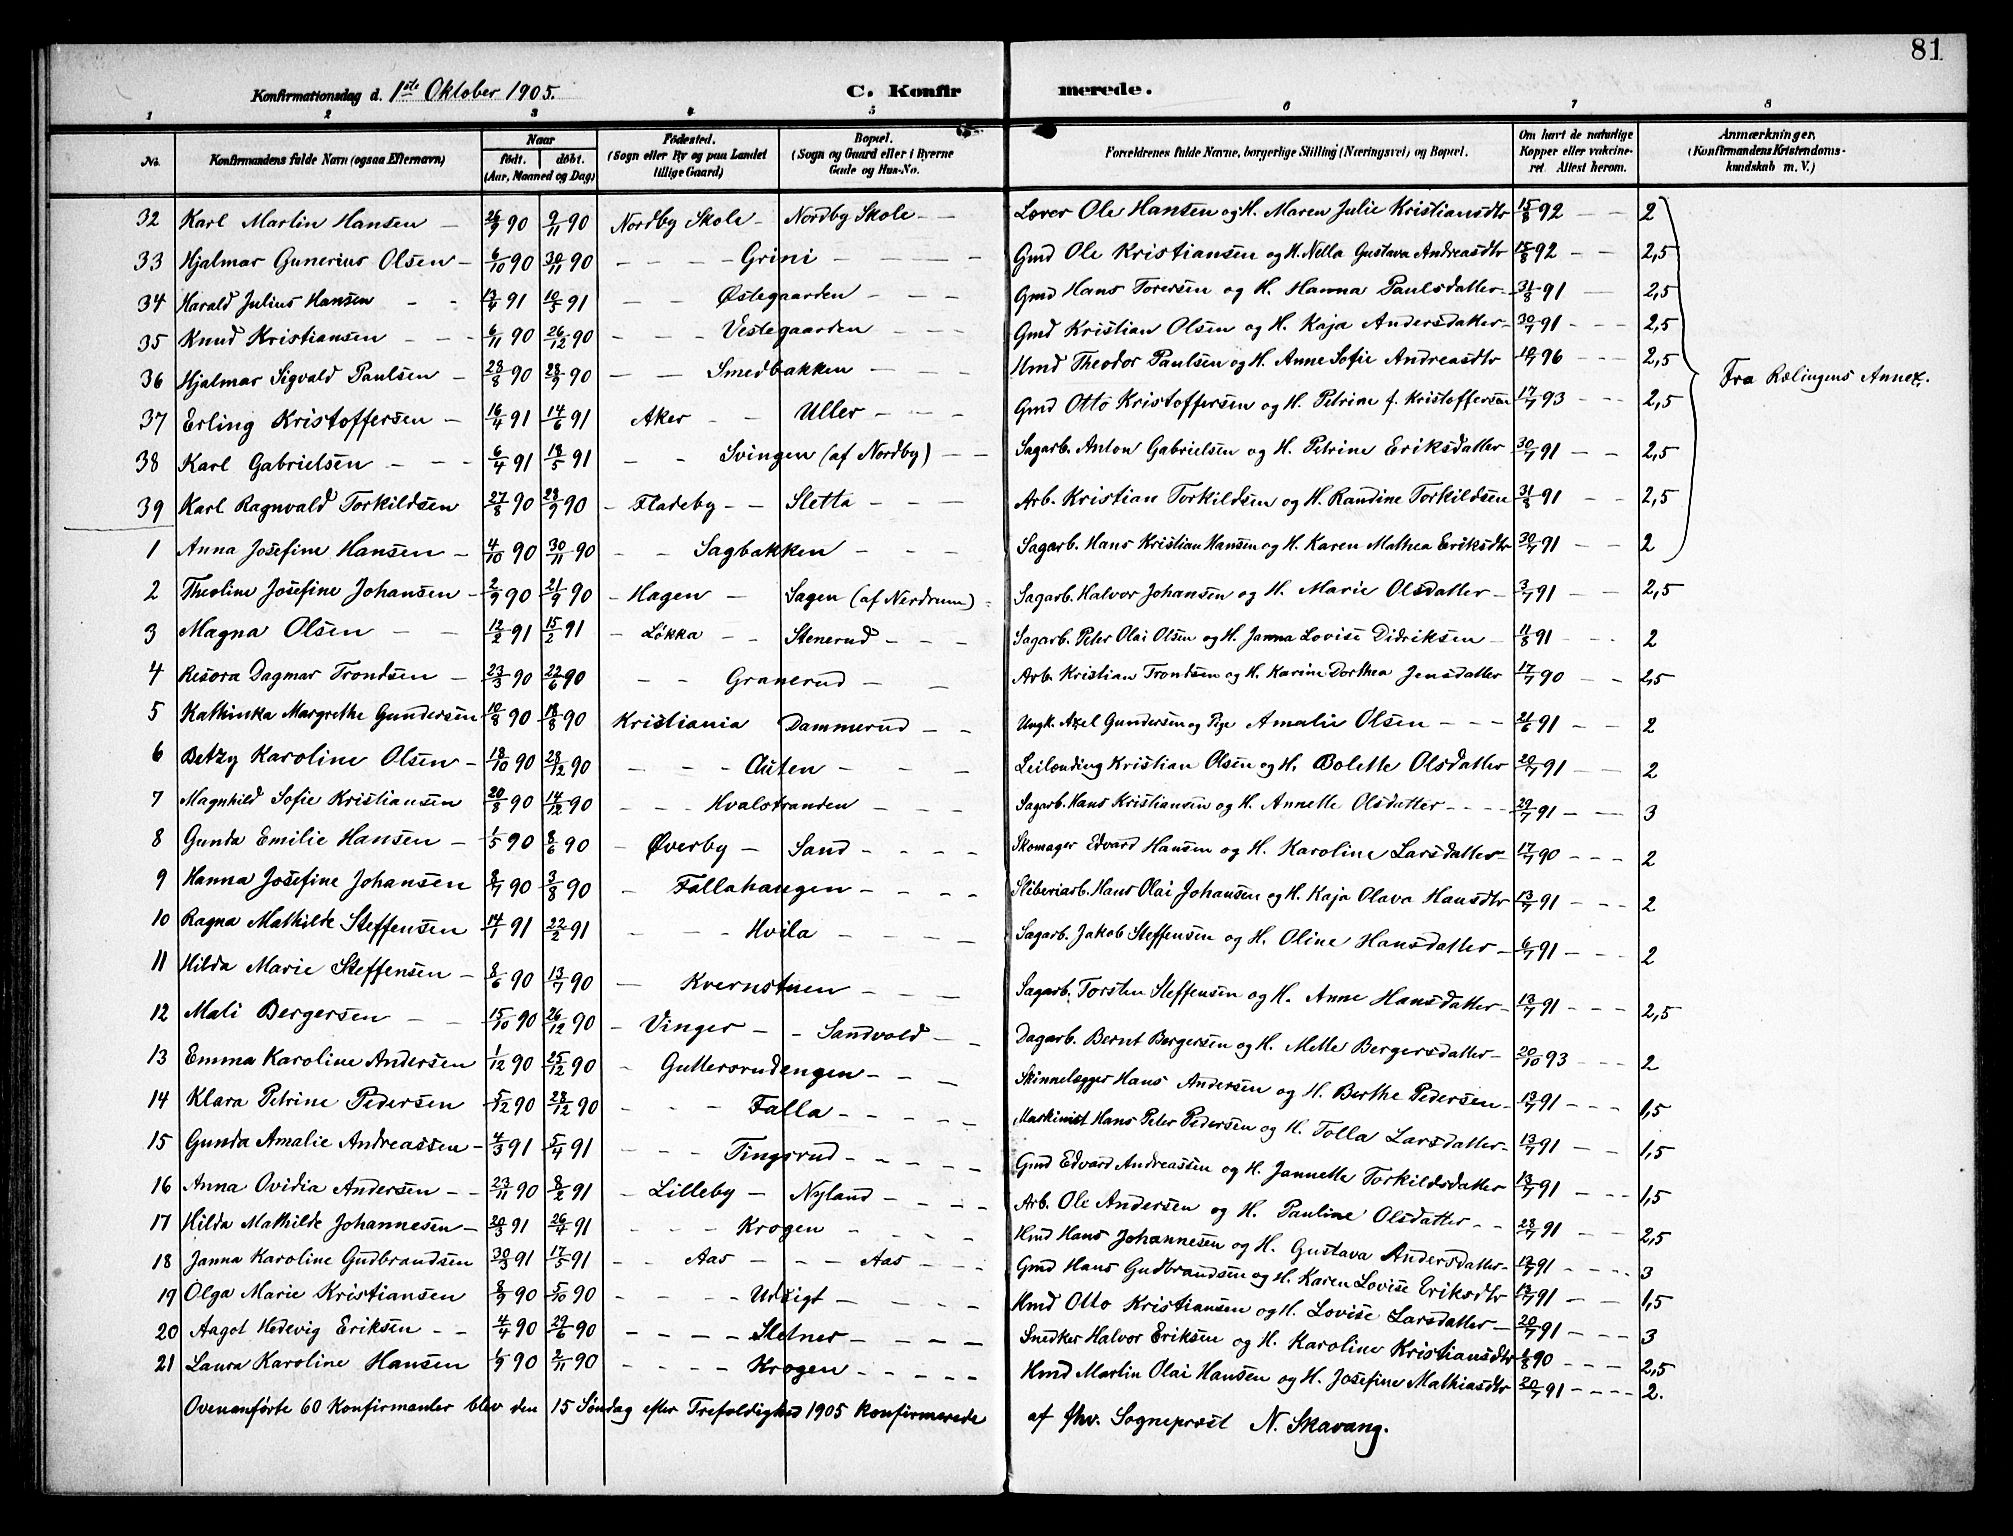 81
Konfirmationsdag d. 1ste Oktober 1905. C. Konfirmerede.
1 2 3 4 5 6 7 8
No. Konfirmandens fulde Navn (ogsaa Efternavn) Naar født. døbt. (Aar, Maaned og Dag) Fødested. (Sogn eller By og paa Landet tillige Gaard) Bopæl. (Sogn og Gaard eller i Byerne Gade og Hus-No. Forældrenes fulde Navne, borgerlige Stilling (Næringsvei) og Bopæl. Om havt de naturlige Kopper eller vakcineret Attest herom. Anmærkninger, (Konfirmandens Kristendomskundskab m. V.)
32 Karl Martin Hansen — 26/9 90 9/11 90 Nordby Skole - Nordby Skole - - Lærer Ole Hansen og H. Maren Julie Kristiansdtr 15/8 92 - - 2
33 Hjalmar Gunerius Olsen - 6/10 90 30/11 90 - - - - Grini - - - - Gmd Ole Kristiansen og H. Nella Gustava Andreasdtr 15/8 92 - - 2,5
34 Harald Julius Hansen - - 13/4 91 10/5 91 - - Østegaarden - - - Gmd Hans Toresen og H. Hanna Paulsdatter - 31/8 91 - 2,5
35 Knud Kristiansen - - - 6/11 90 26/12 90 - - - Vestegaarden - - - Gmd Kristian Olsen og H. Kaja Andersdatter - 30/7 91 - - - 2,5
36 Hjalmar Sigvald Paulsen - 23/8 90 28/9 90 - - Smedbakken - - - Hmd Theodor Paulsen og H. Anne Sofie Andreasdtr 10/7 96 - - - 2,5
Fra Rælingens Annex.
37 Erling Kristoffersen - 16/4 91 14/6 91 Aker - - Uller - - - Gmd Otto Kristoffersen og H. Petrine f. Kristoffersen 17/7 93 - - - 2,5
38 Karl Gabrielsen - - - 6/4 91 18/5 91 - - Svingen (af Nordby) - - Sagarb. Anton Gabrielsen og H. Petrine Eriksdatter 30/7 91 - - 2,5
39 Karl Ragnvald Torkildsen 27/8 90 28/9 90 - Fladeby - - Sletta - - - Arb. Kristian Torkildsen og H. Randine Torkildsen 31/8 91 - - 2,5
1 Anna Josefine Hansen - 4/10 90 30/11 90 - - Sagbakken - - - Sagarb. Hans Kristian Hansen og H. Karen Mathea Eriksdtr 30/7 91 - - 2
2 Theoline Josefine Johansen - 2/9 90 21/9 90 - Hagen - Sagen (af Nerdrum) - Sagarb. Halvor Johansen og H. Marie Olsdatter - 3/7 91 - - 2,5
3 Magna Olsen - - 12/2 91 15/2 91 - Løkka - - Stenerud - - - Sagarb. Peter Olai Olsen og H. Janna Lovise Didriksen - 11/8 91 - - 2
4 Resora Dagmar Trondsen - 23/3 90 22/6 90 - - Granerud - - Arb. Kristian Trondsen og H. Karine Dorthea Jensdatter 17/7 90 - - 2,5
5 Kathinka Margrethe Gundersen 10/8 90 18/8 90 Kristiania Dammerud - - Ungk. Axel Gundersen og Pige Amalie Olsen - - - 21/6 91 - - 2
6 Betzy Karoline Olsen - 18/10 90 28/12 90 - - - Auten - - - Leilænding Kristian Olsen og H. Bolette Olsdatter 20/7 91 - - 2
7 Magnhild Sofie Kristiansen 20/8 90 14/12 90 - - - Hvalstranden - - Sagarb. Hans Kristiansen og H. Annette Olsdatter - - - - 29/7 91 - - 3
8 Gunda Emilie Hansen - 1/5 90 8/6 90 - Øverby - Sand - - - - Skomager Edvard Hansen og H. Karoline Larsdatter - 17/7 90 - - - 2
9 Hanna Josefine Johansen 8/7 90 3/8 90 - Fallahaugen - - - - Sliberiarb. Hans Olai Johansen og H. Kaja Olava Hansdtr 13/7 91 - - - 2
10 Ragna Mathilde Steffensen 14/1 91 22/2 91 - - - Hvila - - - - Sagarb. Jakob Steffensen og H. Oline Hansdatter - 6/7 91 - - 2
11 Hilda Marie Steffensen - 8/6 90 13/7 90 - Kvernstuen - - - Sagarb. Torsten Steffensen og H. Anne Hansdatter - 13/7 91 - - - 2,5
12 Mali Bergersen - - 15/10 90 26/12 90 - Vinger - - Sandvold - - Dagarb. Bernt Bergersen og H. Mette Bergersdatter - 20/10 93 - - - 2
13 Emma Karoline Andersen 1/12 90 25/12 90 - Guttersrudengen - - - Skinnelægger Hans Andersen og H. Berthe Pedersen - 13/7 91 - - - 1,5
14 Klara Petrine Pedersen 5/12 90 28/12 90 - - - Falla - - - - - Maskinist Hans Peter Pedersen og H. Tolla Larsdatter - 13/7 91 - - 1,5
15 Gunda Amalie Andreassen - 4/3 91 5/4 91 - - - Tingsrud - - - - - Gmd Edvard Andreassen og H. Jannette Torkildsdatter 13/7 91 - - - 1,5
16 Anna Ovidia Andersen - - 23/11 90 8/2 91 - Lilleby - Nyland - - - - Arb. Ole Andersen og H. Pauline Olsdatter - - 28/7 91 - - - 2,5
17 Hilda Mathilde Johannesen - 20/3 91 26/4 91 - - - Krogen - - - - Hmd Hans Johannesen og H. Gustava Andersdatter - 13/7 91 - - - - 3
18 Janna Karoline Gudbrandsen 30/3 91 17/5 91 - - Aas - - - Aas - - - Gmd Hans Gudbrandsen og H. Karen Lovise Eriksdtr 13/7 91 - - 1,5
19 Olga Marie Kristiansen 8/9 90 5/10 90 - - - - Udsigt - - - - Hmd Otto Kristiansen og H. Lovise Larsdatter - 20/7 91 - - - 3
20 Aagot Hedevig Eriksen - - 4/4 90 29/6 90 - - - - Sletner - - - - Snedker Halvor Eriksen og H. Karoline Kristiansdtr 6/8 90 - - - 2,5
21 Laura Karoline Hansen 1/9 90 2/11 90 - - - - Krogen - - - - - Hmd Martin Olai Hansen og H. Josefine Mathiasdtr 20/7 91 - - - - 2.
Ovenanførte 60 Konfirmanter blev den 15 Søndag efter Trefoldighed 1905 konfirmerede af fhv. Sogneprest N. Skavang.